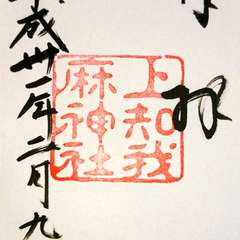 拝
上知我
麻神社
成卅一年二月九